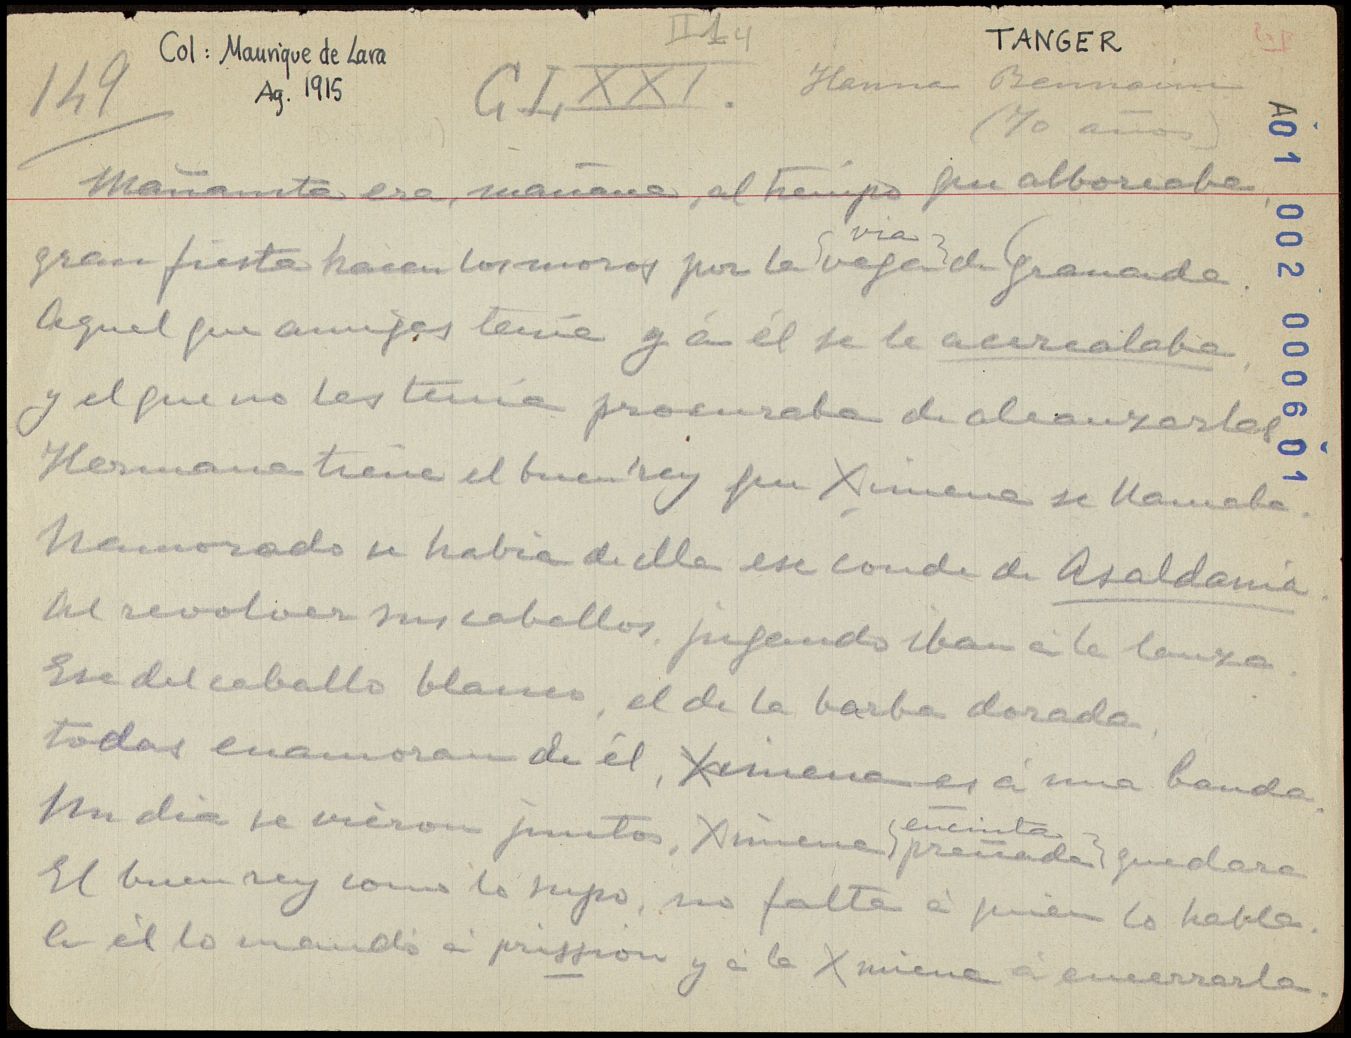 II 1 4
Col: Manrique de Lara
Ag. 1915
TANGER
149
CLXXI.
Hanna Bennaim
(70 años)
A 01 002 0006 01
Mañanita era, mañana, al tiempo que alboreaba,
gran fiesta hacen los moros por la {vega} {via} de Granada.
Aquel que amigas tenía y á él se le acercalaba,
y el que no las tenía procuraba de alcanzarlas
Hermana tiene el buen rey que Ximena se llamaba.
Namorado se había de ella ese conde de Asaldania.
Al revolver sus caballos, jugando iban á la lanza.
Ese del caballo blanco, el de la barba dorada,
todas enamoran de él, Ximena es á una banda.
Un dia se vieron juntos, Ximena {preñada} {encinta} quedara
El buen rey como lo supo, no falta á quien lo habla.
A él lo mandó á prissión y á la Ximena á encerrarla.